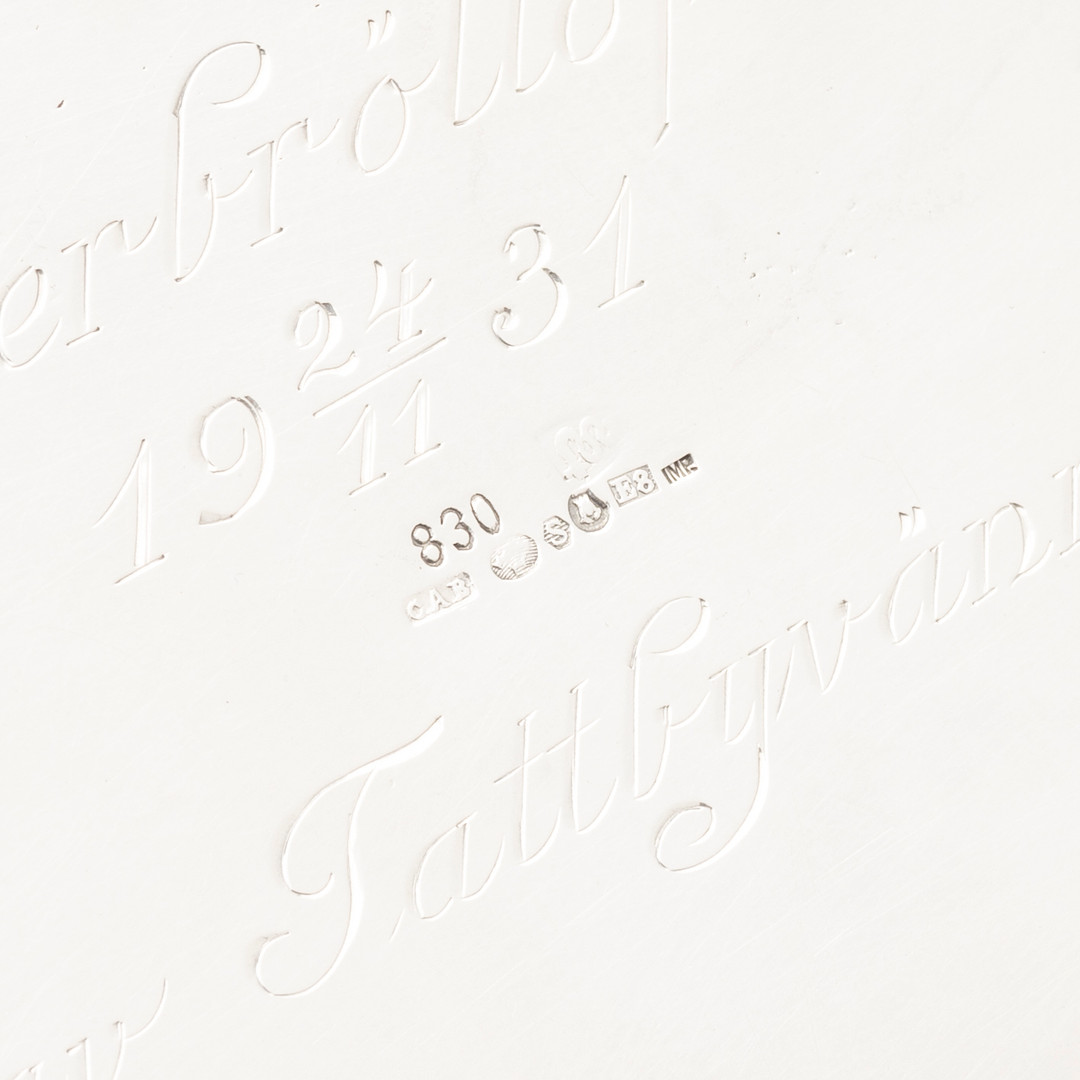 erbröllop
19 24/11 31
830
CAB S E8 IMP.
Tattbyvänn
av